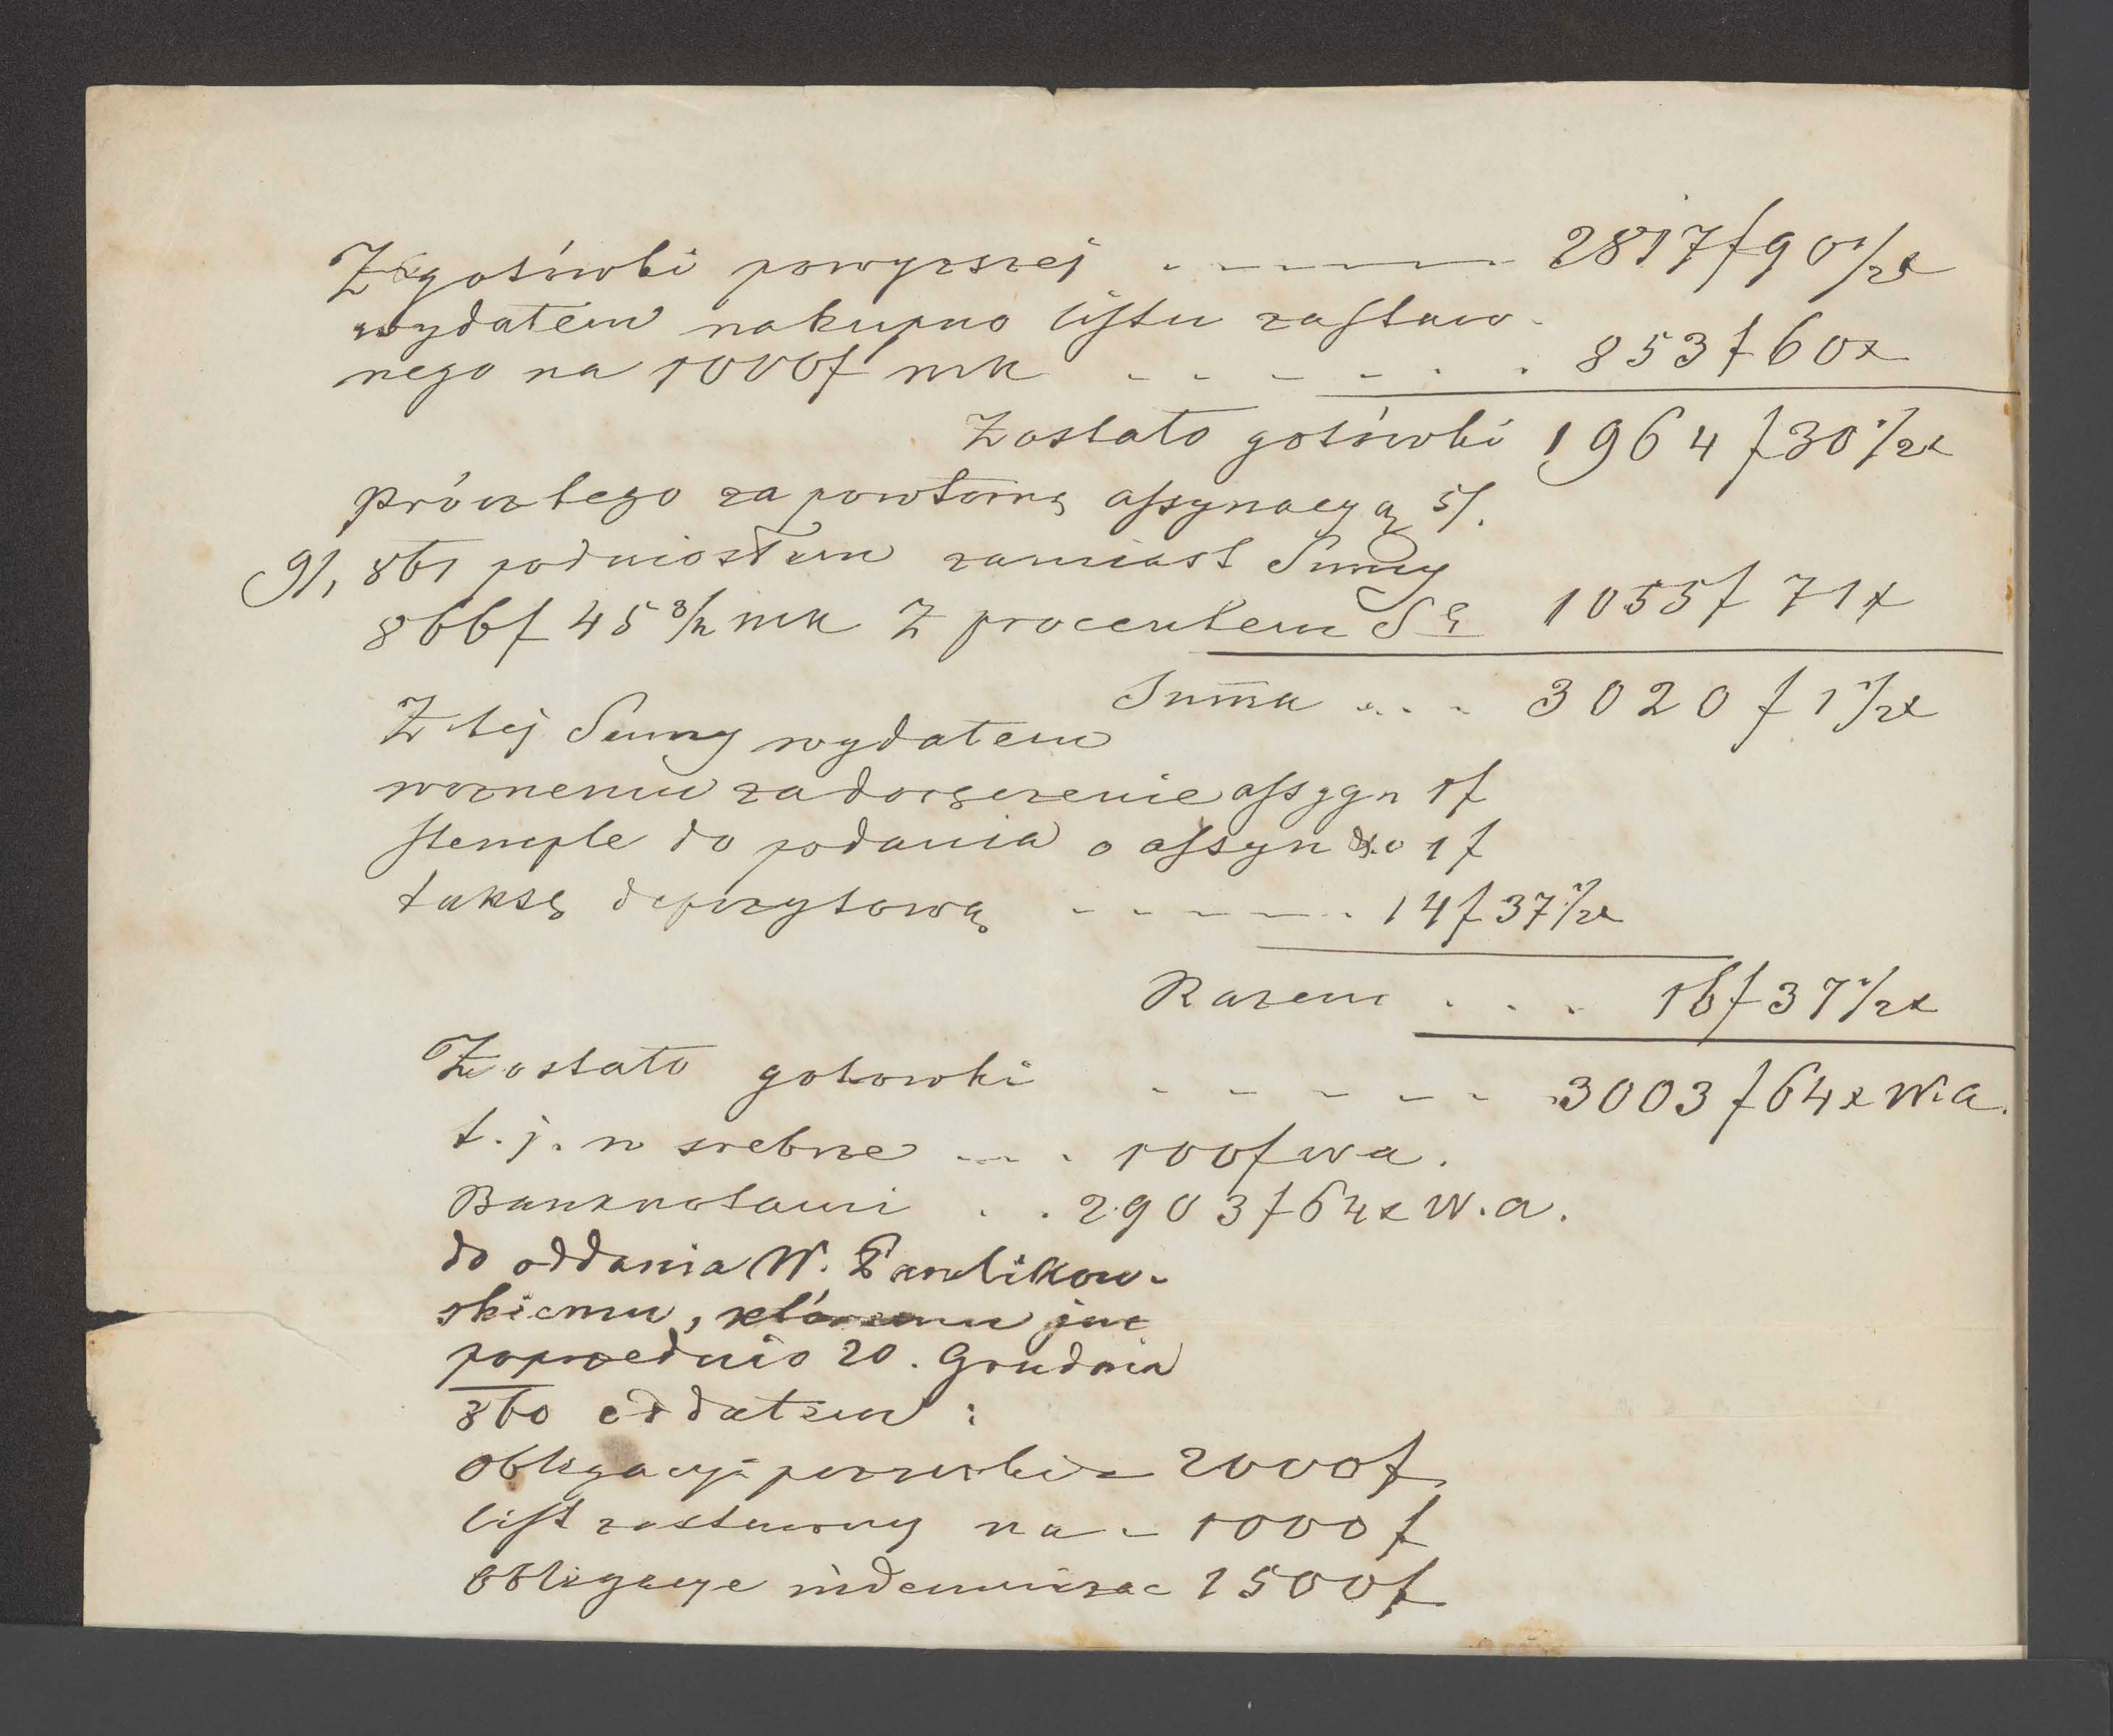 Z gotówki powyższej - - - - - 2817f 90 1/2 x
wydałem na kupno listu zastaw-
nego na 1000f mk - - - - . . . 853f 60x
Zostało gotówki 1964f 30 1/2 x
prócz tego za powtórną assynacyą 5/.
9/, 861 podniosłem zamiast Sumy
866f 45 3/4 mk z procentem 1055f 71x
Suma . . . 3020f 1 1/2 x
Z tej Sumy wydałem
woznemu za doręczenie assygn 1f
stemple do podania o assyn 1f
taksę depozytową - - - - - . 14f 37 1/2 x
Razem . . . 16f 37 1/2 x
Zostało gotowki - - - - - - 3003f 64x W.a.
t.j. w srebrze - - . 100f wa.
Banknotami . . 2903f 64x W.a.
do oddania W. Pawlikow-
skiemu, któremu już
poprzednio 20. Grudnia
860 oddałem :
obligacyą pozyczki - 2000f
list zastawny na - 1000f
obligacye indemnizac 1500f